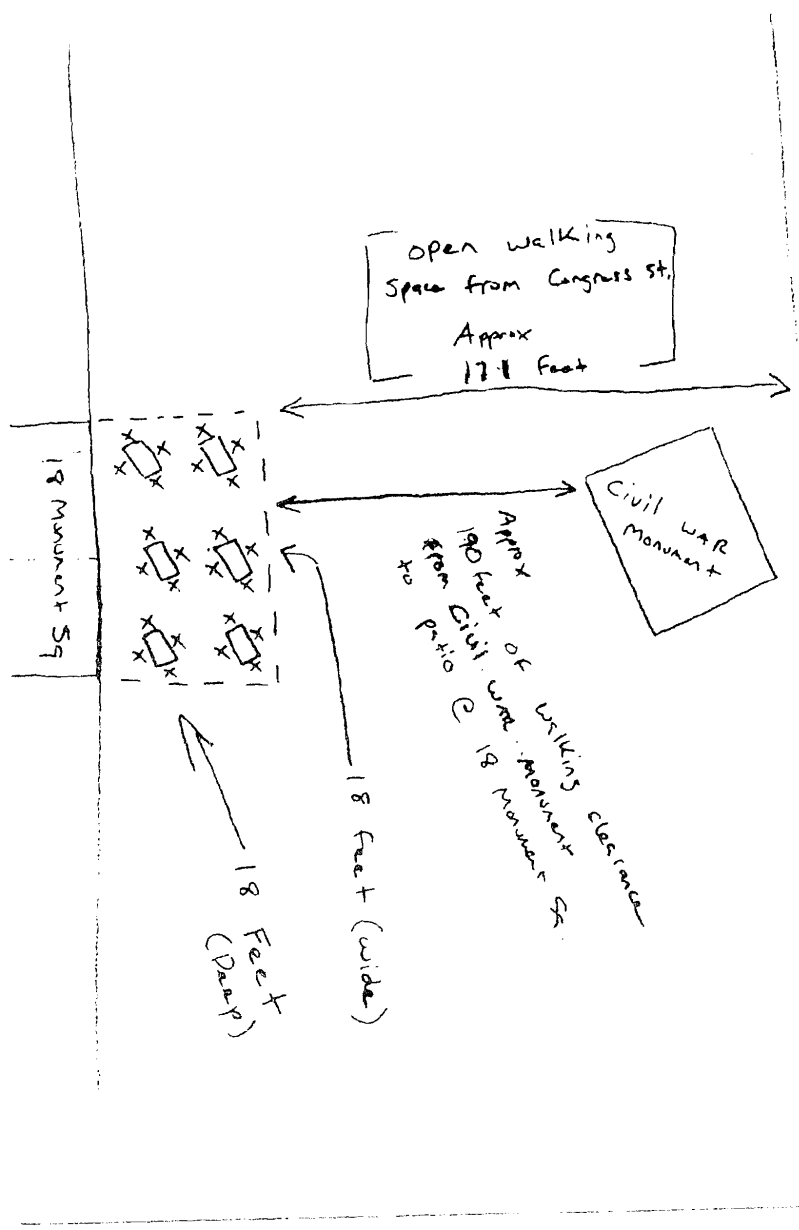 open walking
Space from Congress St.
Approx
171 Feet
Civil WAR
Monument
Approx
190 feet of walking clearance
from Civil WAR Monument
to patio @ 18 Monument Sq.
18 Monument Sq
18 feet (wide)
18 Feet
(Deep)